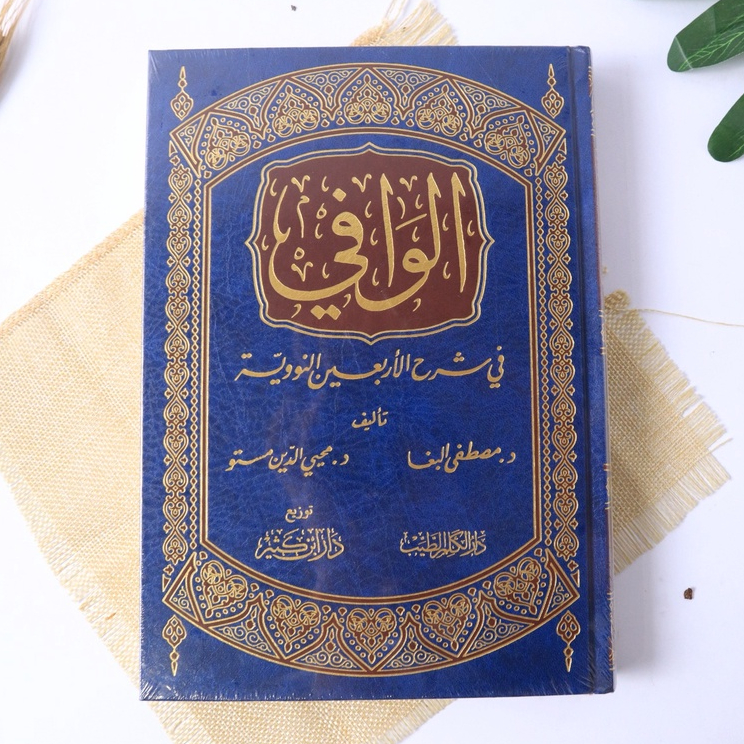 الوافي
في شرح الأربعين النووية
تأليف
د. مصطفى البغا د. محيي الدين مستو
توزيع
دار الكلم الطيب دار ابن كثير